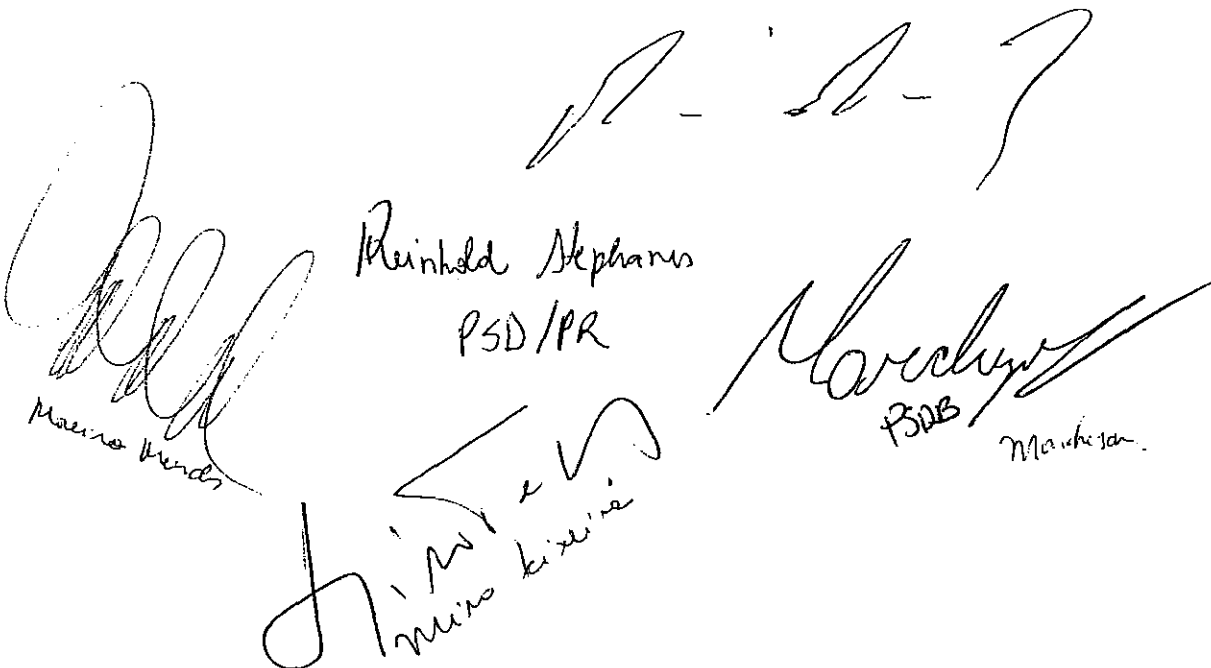 Reinhold Stephanes
PSD/PR
Moreira Mendes
PSDB
Marchezan
Miro Teixeira